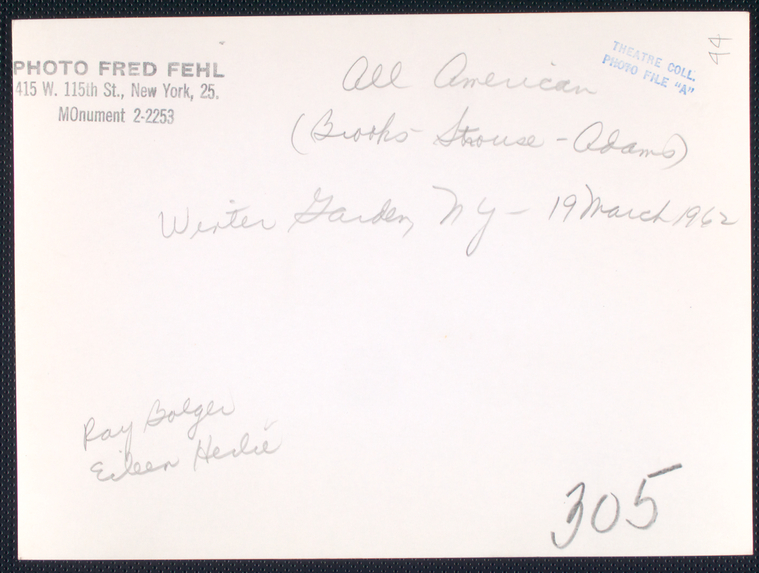 PHOTO FRED FEHL
415 W. 115th St., New York, 25.
MOnument 2-2253
THEATRE COLL.
PHOTO FILE "A"
44
All American
(Brooks-Strouse-Adams)
Winter Garden, NY - 19 March 1962
Ray Bolger
Eileen Herlie
305